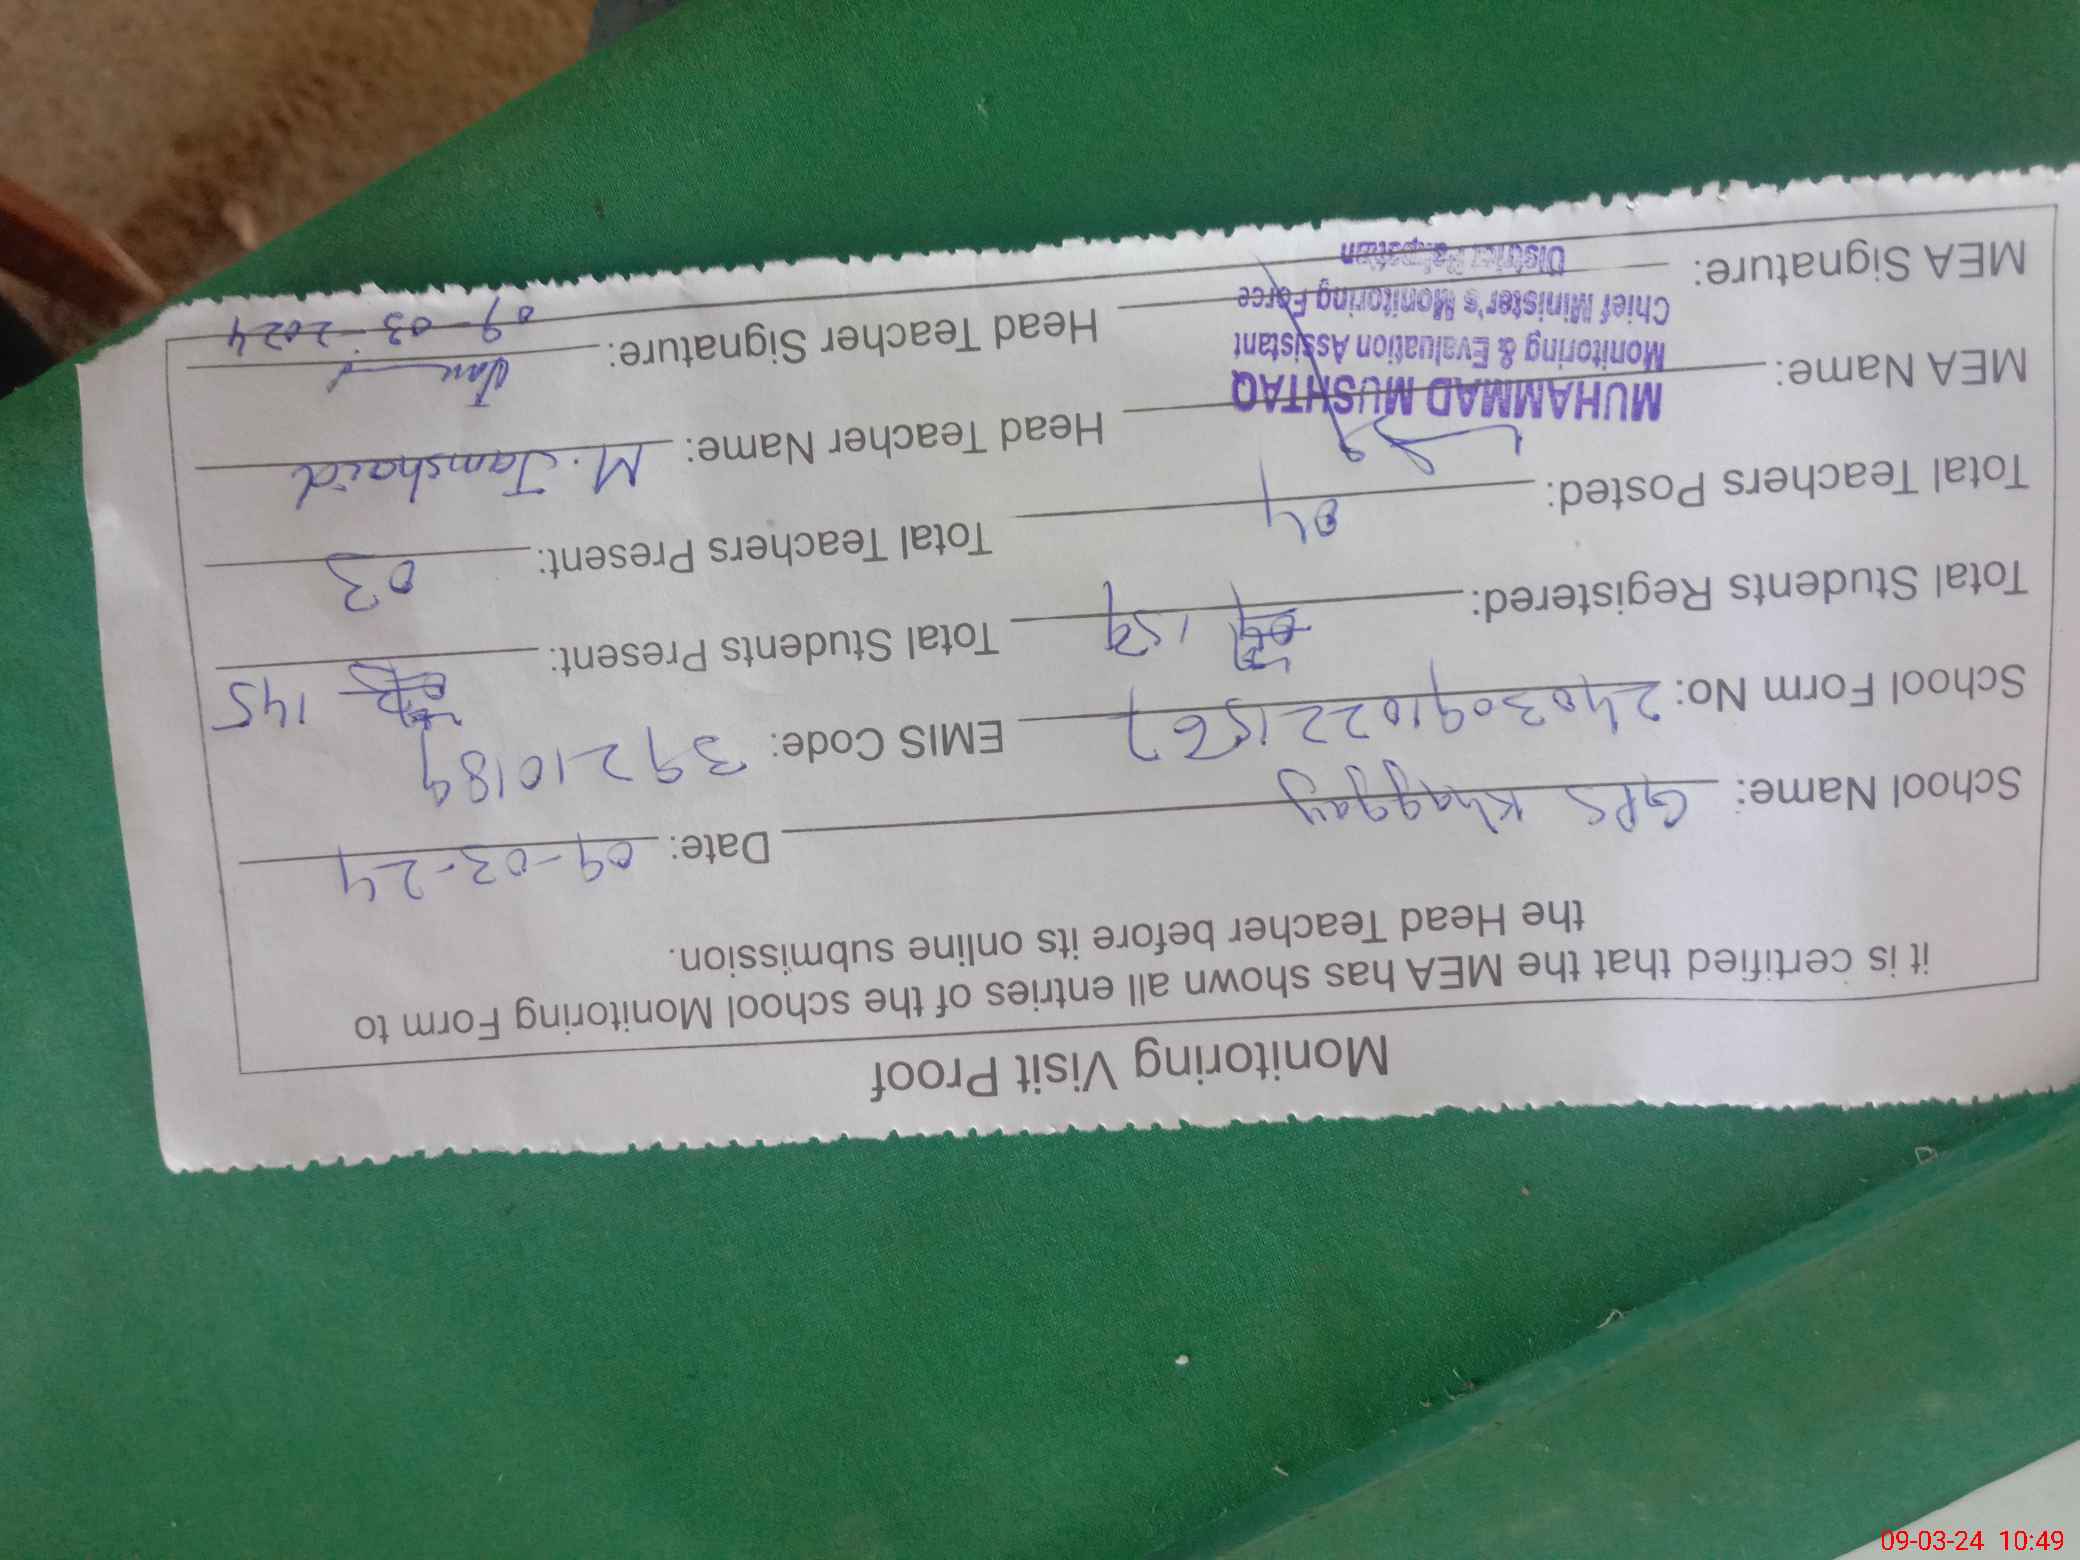 Monitoring Visit Proof
it is certified that the MEA has shown all entries of the school Monitoring Form to
the Head Teacher before its online submission.
School Name: GPS Khaggay Date: 09-03-24
School Form No: 24030910221567 EMIS Code: 39210189
Total Students Registered: 159 Total Students Present: 145
Total Teachers Posted: 04 Total Teachers Present: 03
MEA Name: Head Teacher Name: M. Jamshaid
MUHAMMAD MUSHTAQ
Monitoring & Evaluation Assistant
Chief Minister's Monitoring Force
District Pakpattan
MEA Signature: Head Teacher Signature:
09-03-2024
09-03-24 10:49